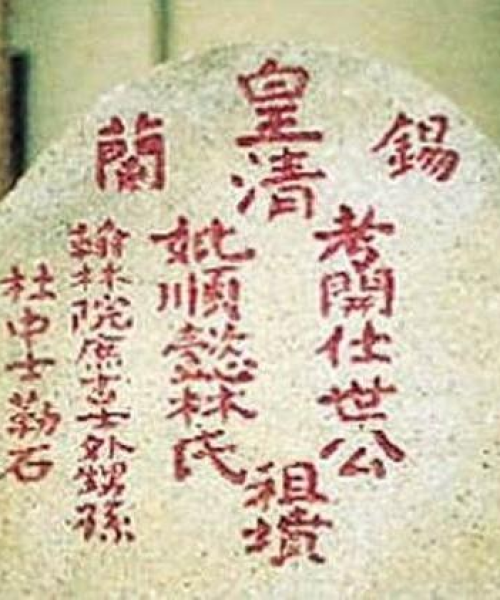 皇清
錫蘭
考開仕世公
妣順懿林氏
祖墳
翰林院庶吉士外甥孫
杜中士勒石